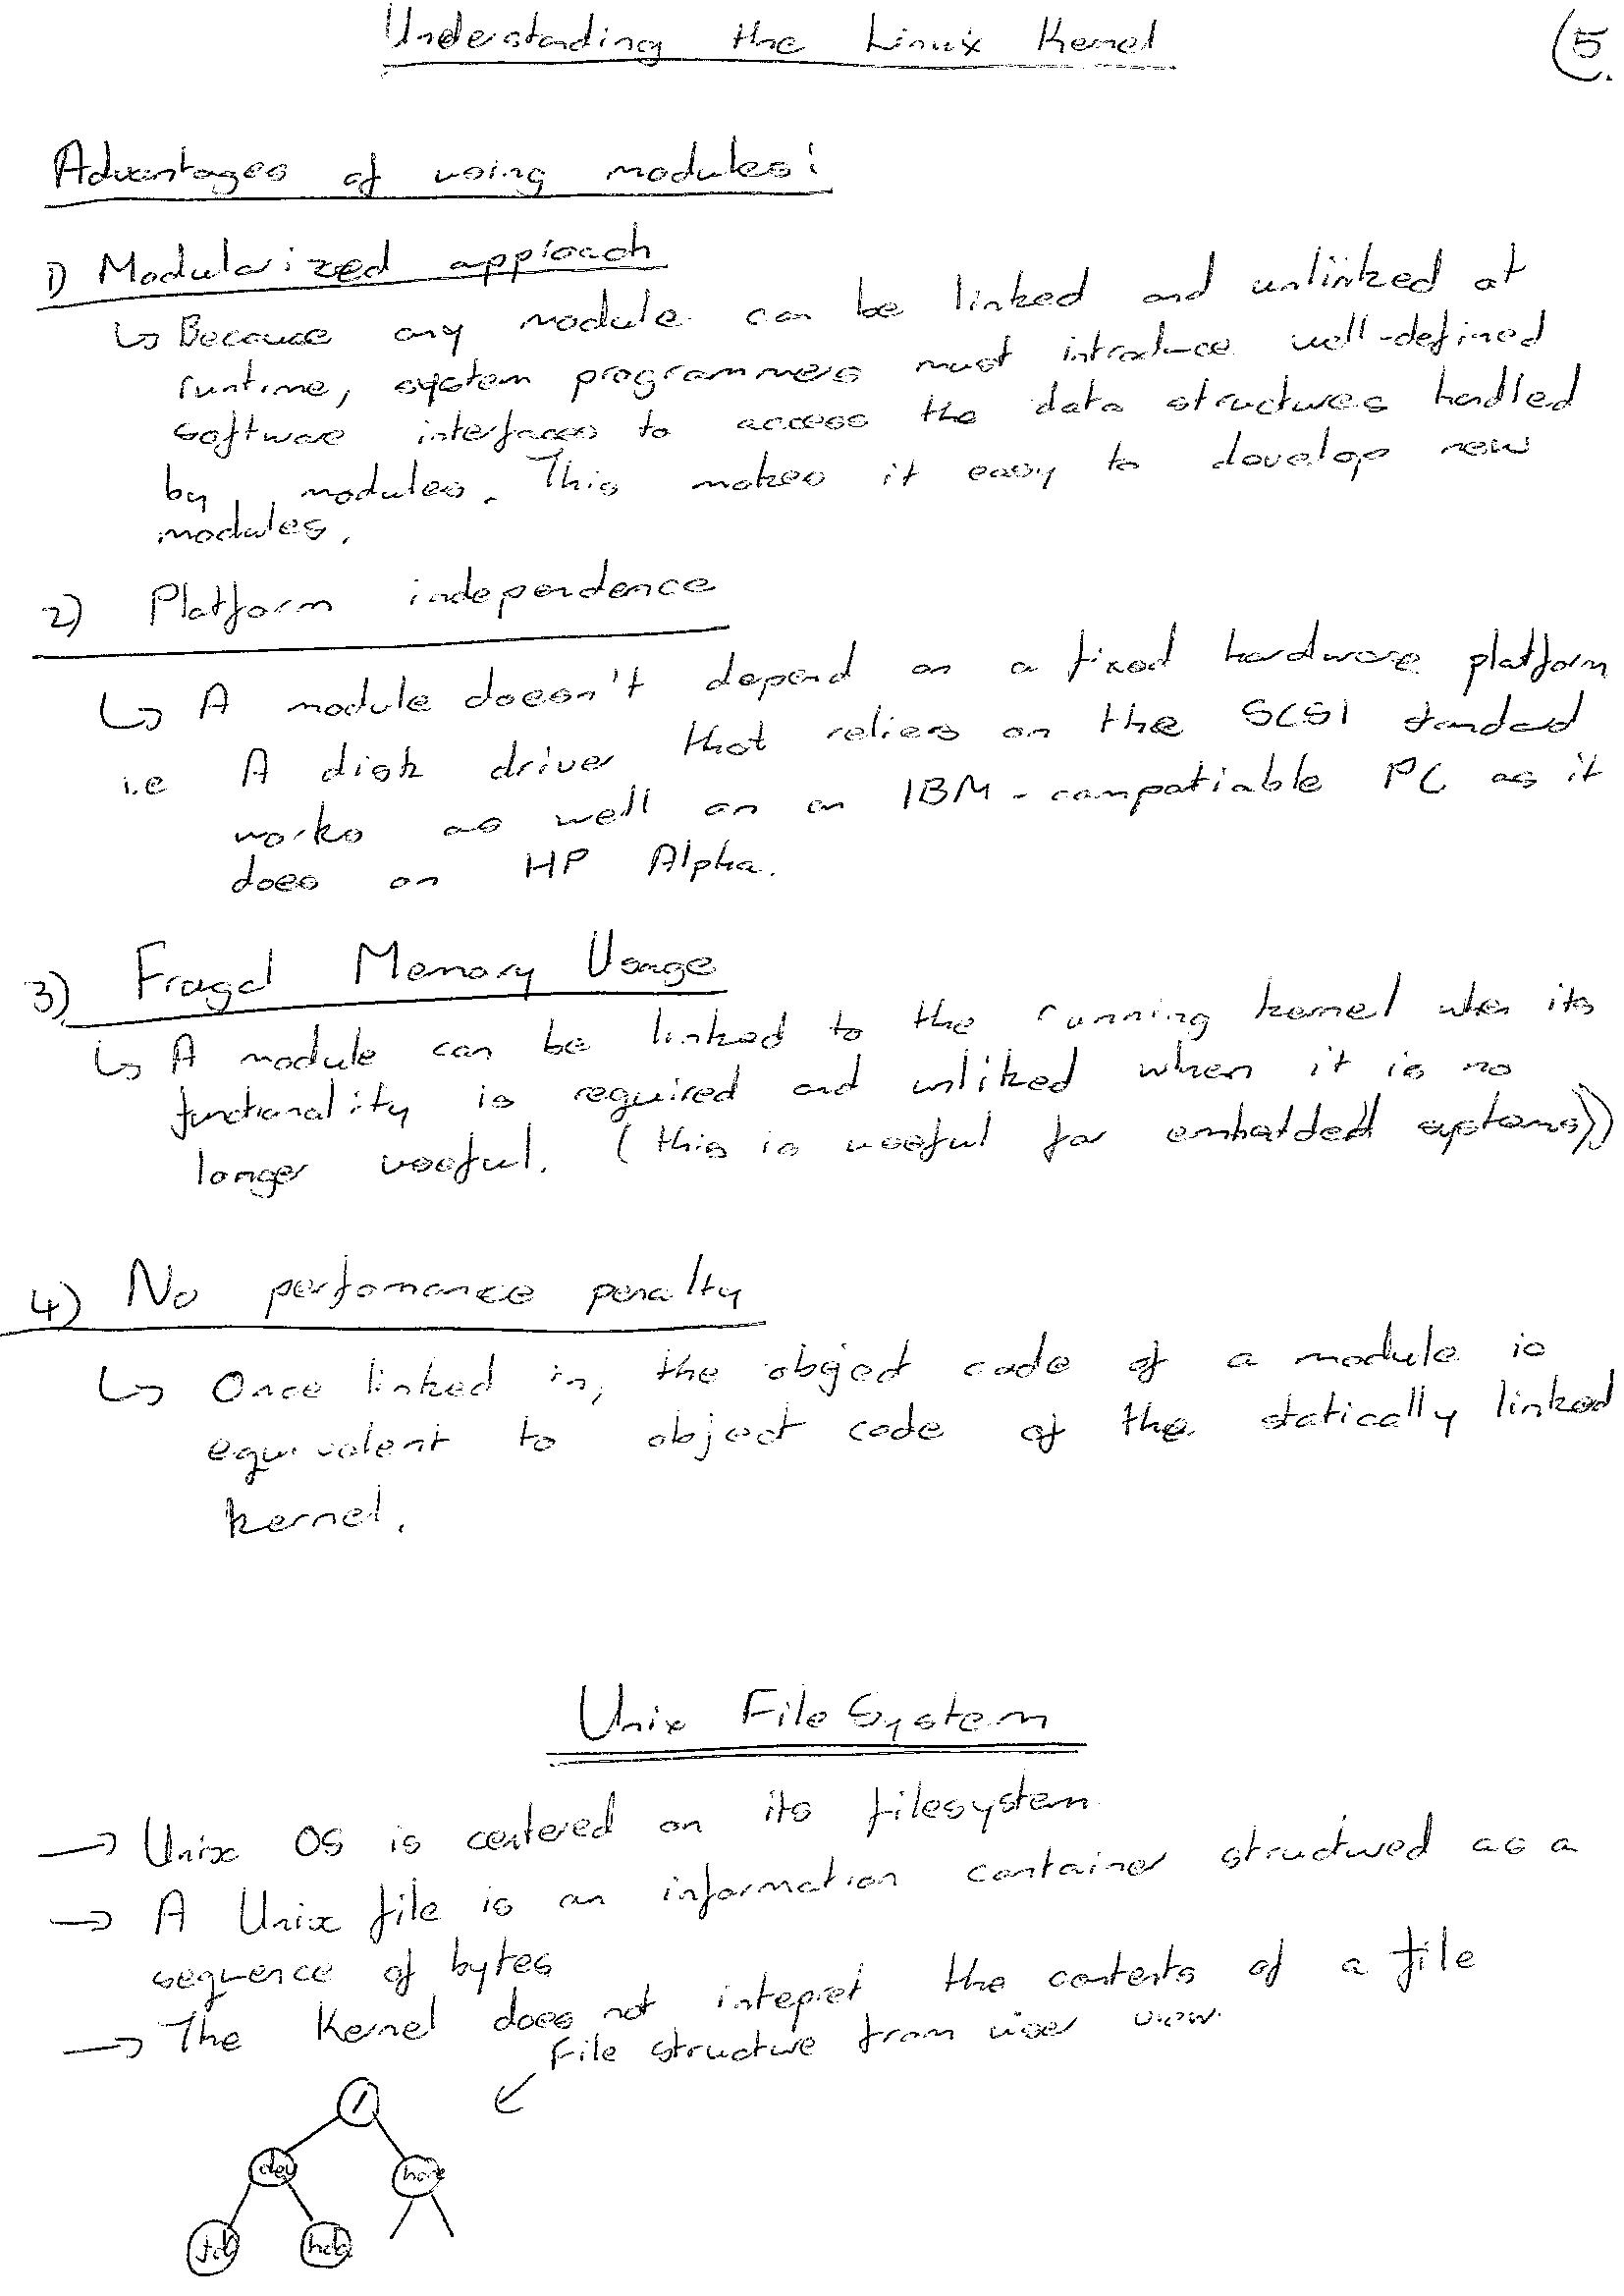 Understanding the Linux Kernel
5.
Advantages of using modules:
1) Modularized approach
↳ Because any module can be linked and unlinked at
runtime, system programmers must introduce well-defined
software interfaces to access the data structures handled
by modules. This makes it easy to develop new
modules.
2) Platform independence
↳ A module doesn't depend on a fixed hardware platform
i.e A disk driver that reliers on the SCSI standard
works as well on an IBM-compatiable PC as it
does on HP Alpha.
3) Fragal Memory Usage
↳ A module can be linked to the running kernel when its
functionality is required and unliked when it is no
longer useful. (this is useful for embedded systems)
4) No perfomance penalty
↳ Once linked in, the object code of a module is
equivalent to object code of the statically linked
kernel.
Unix File System
→ Unix OS is centered on its filesystem
→ A Unix file is an information container structured as a
sequence of bytes
→ The Kernel does not intepret the contents of a file
File structure from user view.
/
dev home
hda